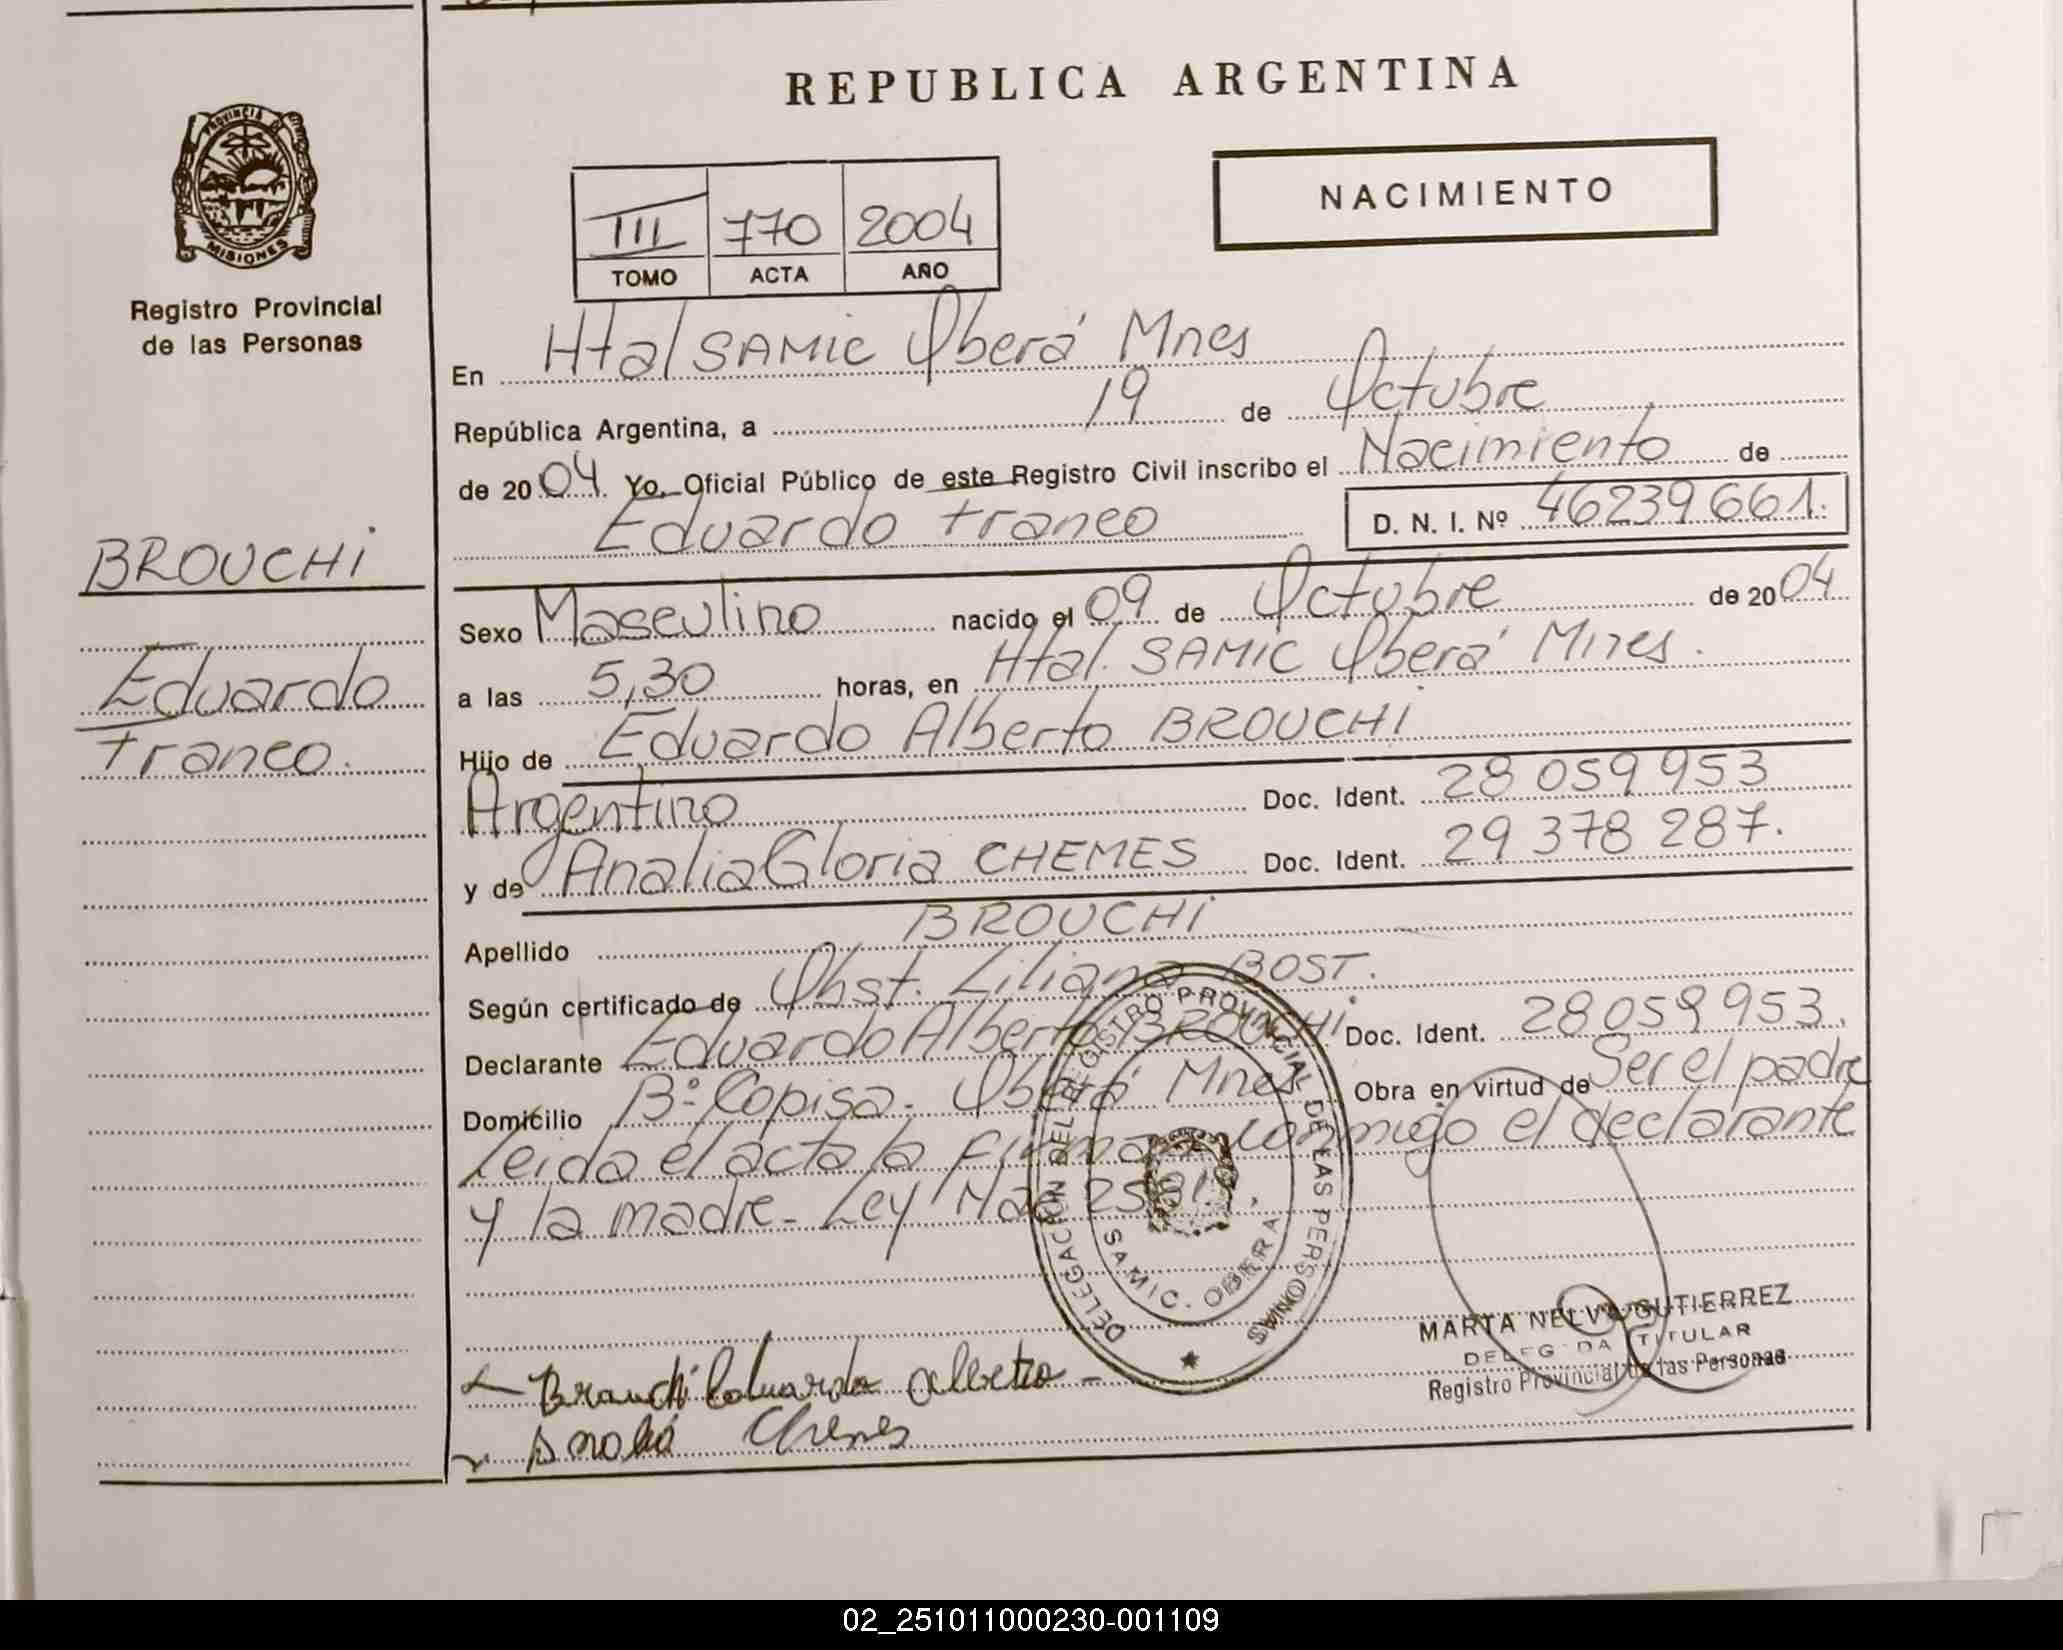 REPUBLICA ARGENTINA
PROVINCIA DE
MISIONES
Registro Provincial
de las Personas
NACIMIENTO
III 770 2004
TOMO ACTA AÑO
En Htal SAMIC Oberá Mnes
República Argentina, a 19 de Octubre
de 2004 Yo, Oficial Público de este Registro Civil inscribo el Nacimiento de
Eduardo Franco D. N. I. Nº 46239661.
BROUCHI
Eduardo
Franco.
Sexo Masculino nacido el 09 de Octubre de 2004
a las 5,30 horas, en Htal. SAMIC Oberá Mnes.
Hijo de Eduardo Alberto BROUCHI
Argentino Doc. Ident. 28 059 953
y de Analia Gloria CHEMES Doc. Ident. 29 378 287.
Apellido BROUCHI
Según certificado de Obst. Liliana BOST.
Declarante Eduardo Alberto BROUCHI. Doc. Ident. 28 059 953.
Domicilio Bº Copisa. Oberá Mnes Obra en virtud de Ser el padre
Leida el acta la firman conmigo el declarante
y la madre. Ley
DELEGACION DEL REGISTRO PROVINCIAL DE LAS PERSONAS
SAMIC. OBERA
MARTA NELVA GUTIERREZ
DELEGADA TITULAR
Registro Provincial de las Personas
Brouchi Eduardo Alberto
Analia Chemes
02_251011000230-001109